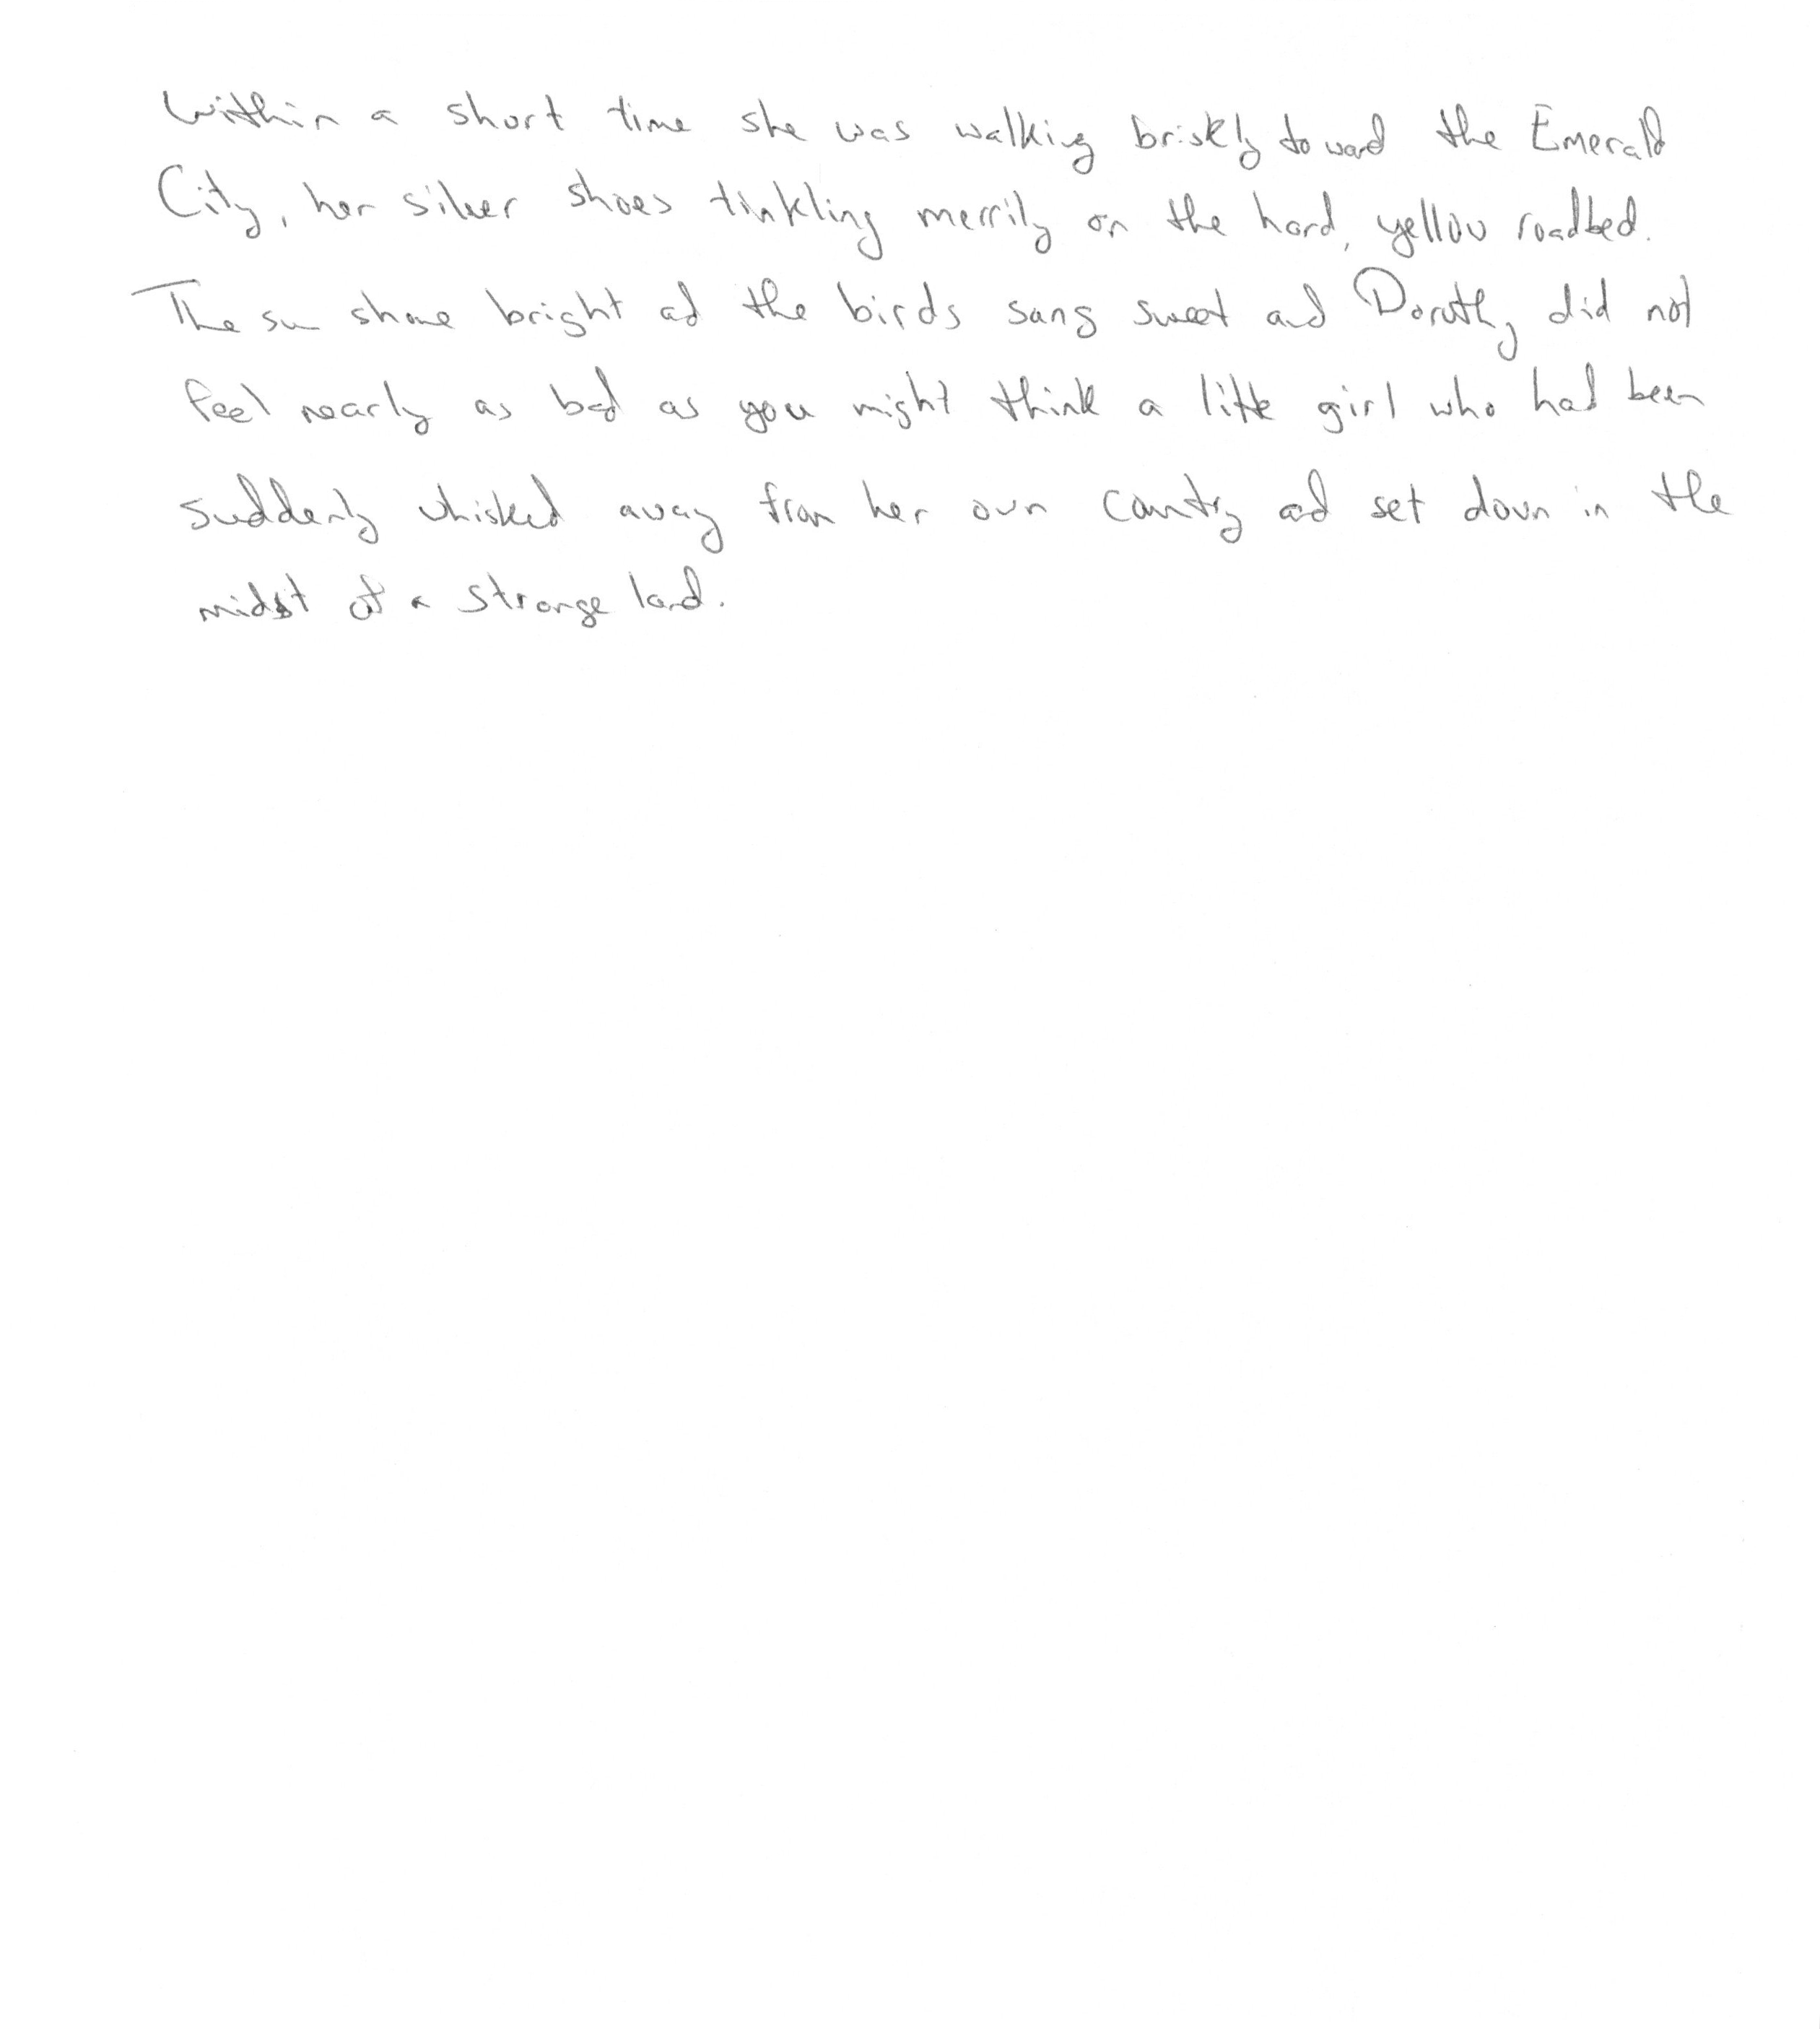 Within a short time she was walking briskly toward the Emerald
City, her silver shoes tinkling merrily on the hard, yellow roadbed.
The sun shone bright and the birds sang sweet and Dorothy did not
feel nearly as bad as you might think a little girl who had been
suddenly whisked away from her own country and set down in the
midst of a strange land.